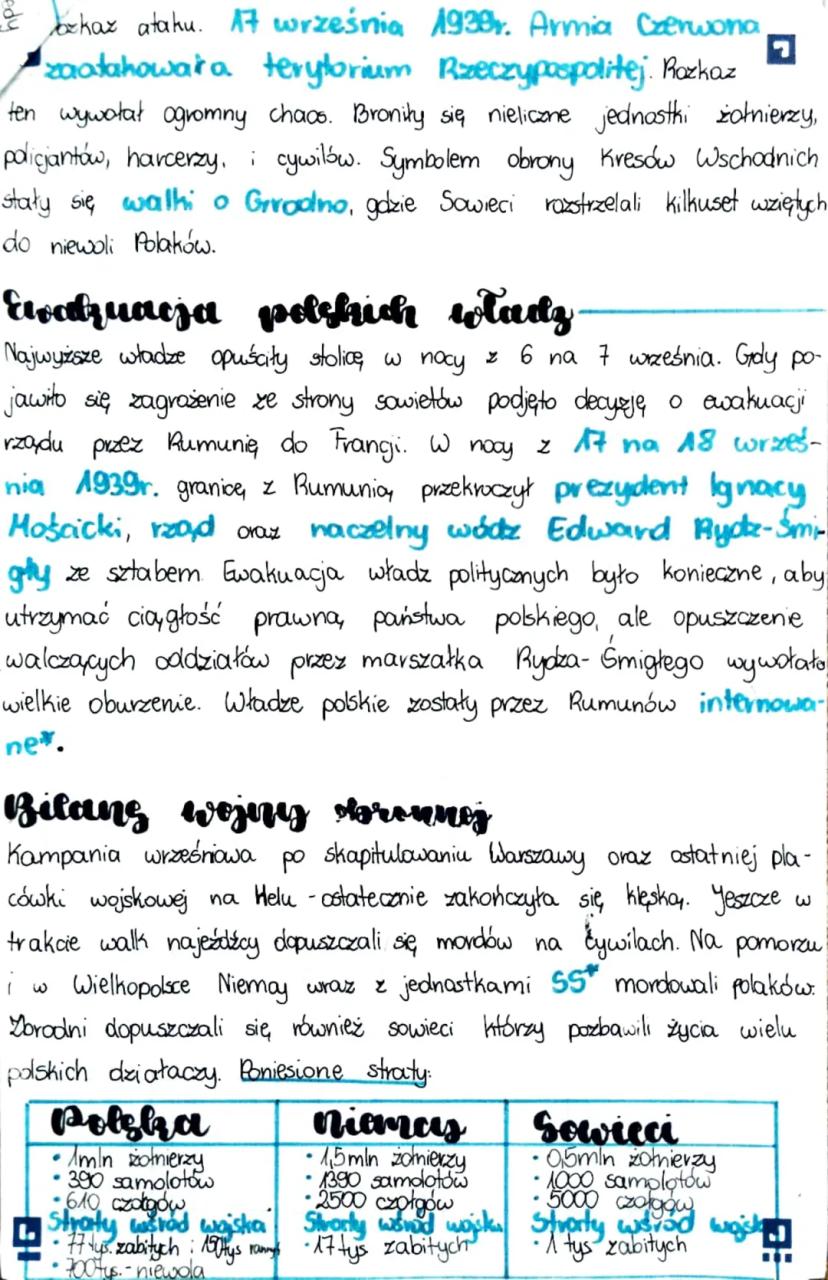 rozkaz ataku. 17 września 1939r. Armia Czerwona
zaatakowała terytorium Rzeczypospolitej. Rozkaz
ten wywołał ogromny chaos. Broniły się nieliczne jednostki żołnierzy,
policjantów, harcerzy, i cywilów. Symbolem obrony Kresów Wschodnich
stały się walki o Grrodno, gdzie Sowieci rozstrzelali kilkuset wziętych
do niewoli Polaków.
Ewakuacja polskich władz
Najwyższe władze opuściły stolicę w nocy z 6 na 7 września. Gdy po-
jawiło się zagrożenie ze strony sowietów podjęto decyzję o ewakuacji
rządu przez Rumunię do Francji. W nocy z 17 na 18 wrześ-
nia 1939r. granicę z Rumunią przekroczył prezydent Ignacy
Mościcki, rząd oraz naczelny wódz Edward Rydz-Śmi-
gły ze sztabem. Ewakuacja władz politycznych było konieczne, aby
utrzymać ciągłość prawną państwa polskiego, ale opuszczenie
walczących oddziałów przez marszałka Rydza-Śmigłego wywołało
wielkie oburzenie. Władze polskie zostały przez Rumunów internowa-
ne*.
Bilans wojny obronnej
Kampania wrześniowa po skapitulowaniu Warszawy oraz ostatniej pla-
cówki wojskowej na Helu - ostatecznie zakończyła się klęską. Jeszcze w
trakcie walk najeźdźcy dopuszczali się mordów na cywilach. Na pomorzu
i w Wielkopolsce Niemcy wraz z jednostkami SS* mordowali polaków.
Zbrodni dopuszczali się również sowieci którzy pozbawili życia wielu
polskich działaczy. Poniesione straty:
Polska Niemcy Sowieci
• 1mln żołnierzy • 1,5mln żołnierzy • 0,5mln żołnierzy
• 390 samolotów • 1390 samolotów • 1000 samolotów
• 610 czołgów • 2500 czołgów • 5000 czołgów
Straty wśród wojska Straty wśród wojska Straty wśród wojska
• 77 tys. zabitych i 150tys rannych • 17 tys zabitych • 1 tys zabitych
• 700tys.- niewola